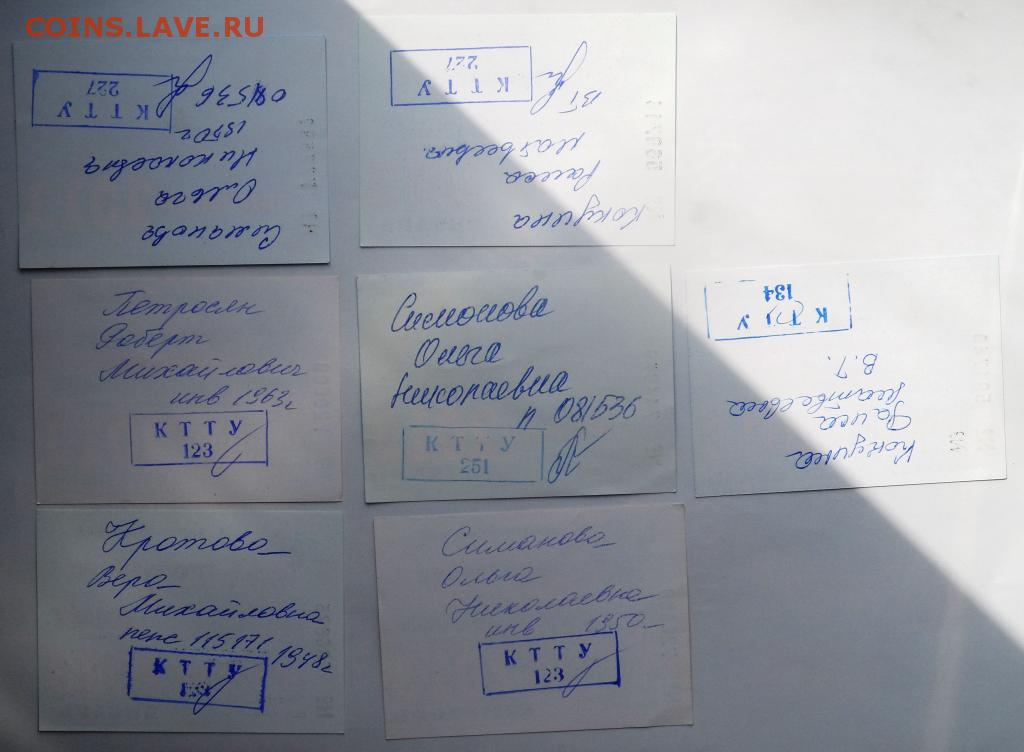 COINS.LAVE.RU
Симанова
Ольга
Николаевна
1950г
081536
КТТУ
227
Кокунина
Раиса
Матвеевна
ВТ
КТТУ
227
Петросян
Роберт
Михайлович
инв 1963г
КТТУ
123
Симонова
Ольга
Николаевна
п 081536
КТТУ
251
Кокунина
Раиса
Матвеевна
В.Т.
КТТУ
134
Кротова
Вера
Михайловна
пенс 115171 1948г
КТТУ
Симанова
Ольга
Николаевна
инв 1950
КТТУ
123